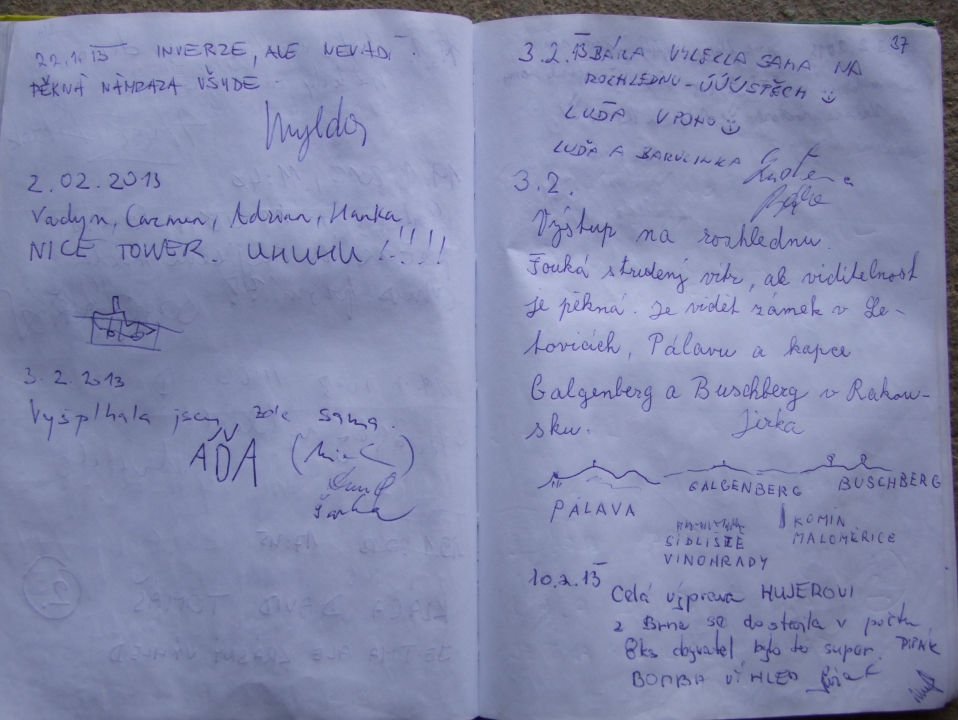 22.1.13 INVERZE, ALE NEVADÍ.
PĚKNÁ NÁMRAZA VŠUDE
2.02.2013
Vadym, Carmen, Adrian, Hanka
NICE TOWER. UHUHU !!!!!
3.2.2013
Vyšplhala jsem zde sama.
AĎA
37
3.2.13 BÁRA VYLEZLA SAMA NA
ROZHLEDNU - ÚÚÚSTĚCH
LUĎA V POHO
LUĎA A BARULINKA
3.2.
Výstup na rozhlednu.
Fouká studený vítr, ale viditelnost
je pěkná. Je vidět zámek v Le-
tovicích, Pálavu a kopce
Galgenberg a Buschberg v Rakou-
sku. Jirka
PÁLAVA
GALGENBERG
BUSCHBERG
SÍDLIŠTĚ
VINOHRADY
KOMÍN
MALOMĚŘICE
10.2.13 Celá výprava HUJEROVI
z Brna se dostala v počtu
8ks obyvatel bylo to super.
BOMBA VÝHLED